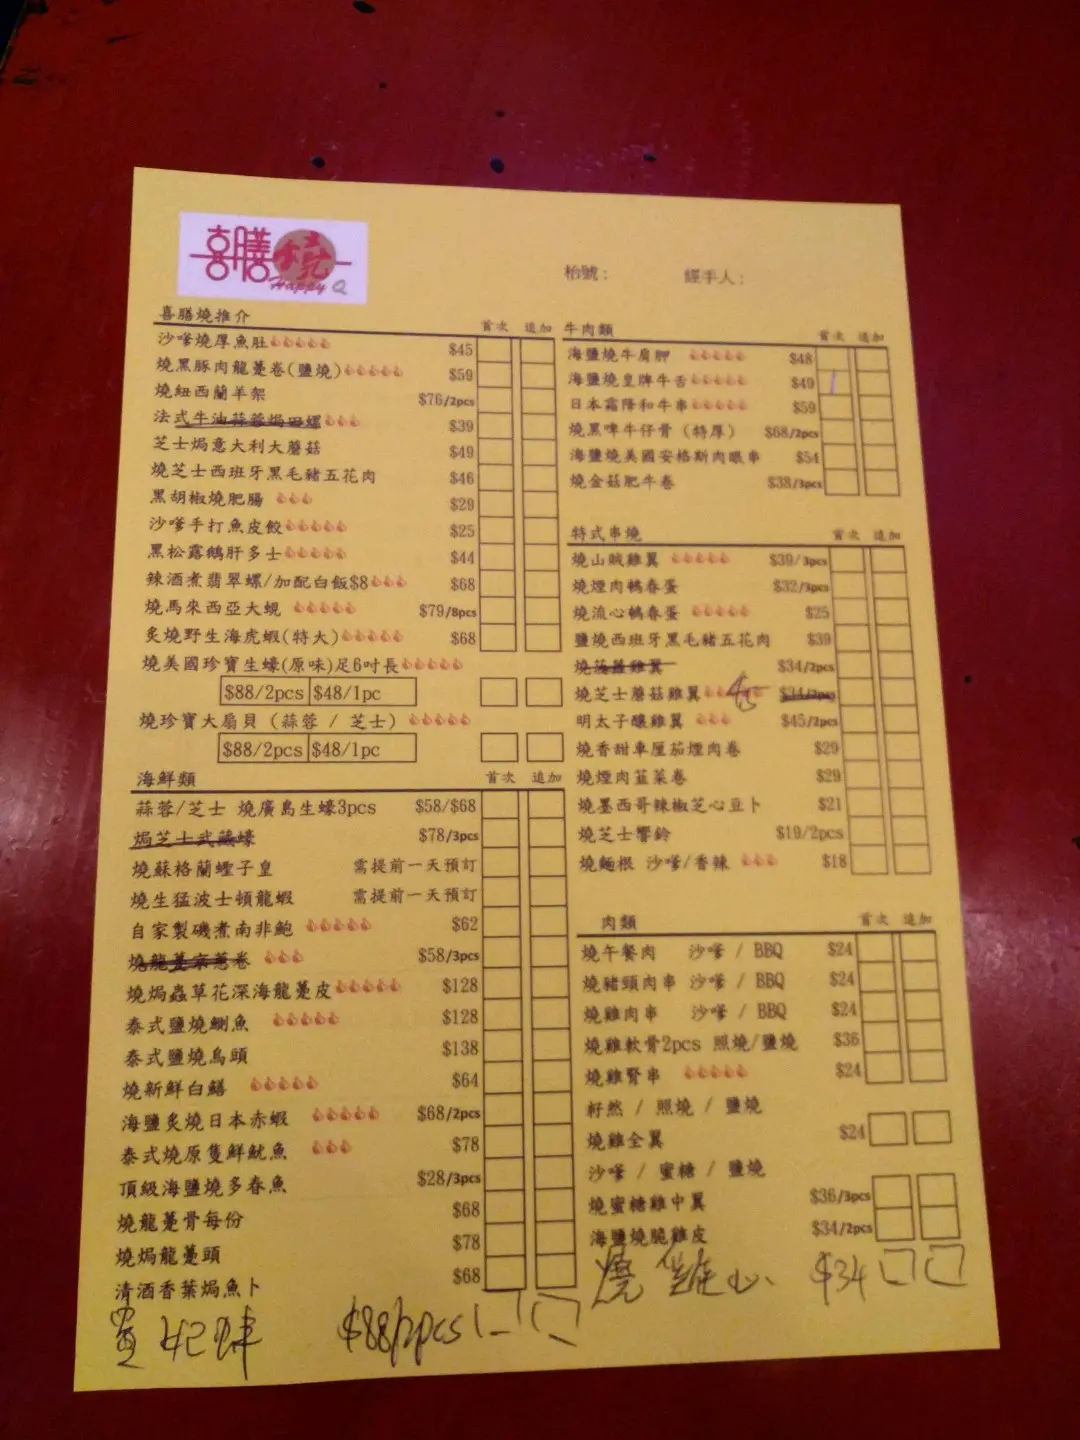 喜膳燒
Happy Q
枱號：
經手人：
喜膳燒推介 首次 追加
沙嗲燒厚魚肚 $45
燒黑豚肉龍躉卷(鹽燒) $59
燒紐西蘭羊架 $76/2pcs
法式牛油蒜蓉焗田螺 $39
芝士焗意大利大蘑菇 $49
燒芝士西班牙黑毛豬五花肉 $46
黑胡椒燒肥腸 $29
沙嗲手打魚皮餃 $25
黑松露鵝肝多士 $44
辣酒煮翡翠螺/加配白飯$8 $68
燒馬來西亞大蜆 $79/8pcs
炙燒野生海虎蝦(特大) $68
燒美國珍寶生蠔(原味)足6吋長
$88/2pcs $48/1pc
燒珍寶大扇貝 (蒜蓉 / 芝士)
$88/2pcs $48/1pc
海鮮類 首次 追加
蒜蓉/芝士 燒廣島生蠔3pcs $58/$68
焗芝士武藏蠔 $78/3pcs
燒蘇格蘭蟶子皇 需提前一天預訂
燒生猛波士頓龍蝦 需提前一天預訂
自家製磯煮南非鮑 $62
燒龍躉京蔥卷 $58/3pcs
燒焗蟲草花深海龍躉皮 $128
泰式鹽燒鰂魚 $128
泰式鹽燒烏頭 $138
燒新鮮白鱔 $64
海鹽炙燒日本赤蝦 $68/2pcs
泰式燒原隻鮮魷魚 $78
頂級海鹽燒多春魚 $28/3pcs
燒龍躉骨每份 $68
燒焗龍躉頭 $78
清酒香葉焗魚卜 $68
$88/2pcs
牛肉類 首次 追加
海鹽燒牛肩胛 $48
海鹽燒皇牌牛舌 $49
日本霜降和牛串 $59
燒黑啤牛仔骨 (特厚) $68/2pcs
海鹽燒美國安格斯肉眼串 $54
燒金菇肥牛卷 $38/3pcs
特式串燒 首次 追加
燒山賊雞翼 $39/3pcs
燒煙肉鵪春蛋 $32/3pcs
燒流心鵪春蛋 $25
鹽燒西班牙黑毛豬五花肉 $39
雞翼 $34/2pcs
燒芝士蘑菇雞翼 $34/2pcs
明太子釀雞翼 $45/2pcs
燒香甜車厘茄煙肉卷 $29
燒煙肉韮菜卷 $29
燒墨西哥辣椒芝心豆卜 $21
燒芝士響鈴 $19/2pcs
燒麵根 沙嗲/香辣 $18
肉類 首次 追加
燒午餐肉 沙嗲 / BBQ $24
燒豬頸肉串 沙嗲 / BBQ $24
燒雞肉串 沙嗲 / BBQ $24
燒雞軟骨2pcs 照燒/鹽燒 $36
燒雞腎串 $24
籽然 / 照燒 / 鹽燒
燒雞全翼 $24
沙嗲 / 蜜糖 / 鹽燒
燒蜜糖雞中翼 $36/3pcs
海鹽燒脆雞皮 $34/2pcs
燒 雞心 $34